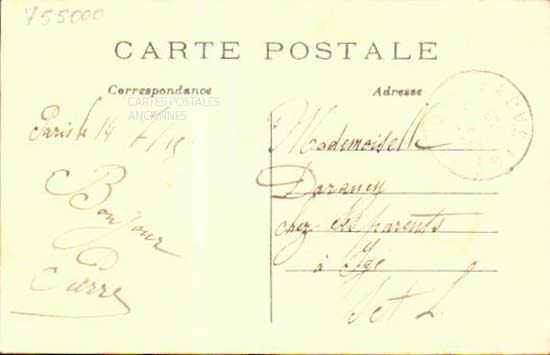 755000
CARTE POSTALE
Correspondance
Adresse
CARTES POSTALES
ANCIENNES
Paris le 14
Bonjour
Pierre
Mademoiselle
Daraney
chez ses parents
à Igé
S et L.